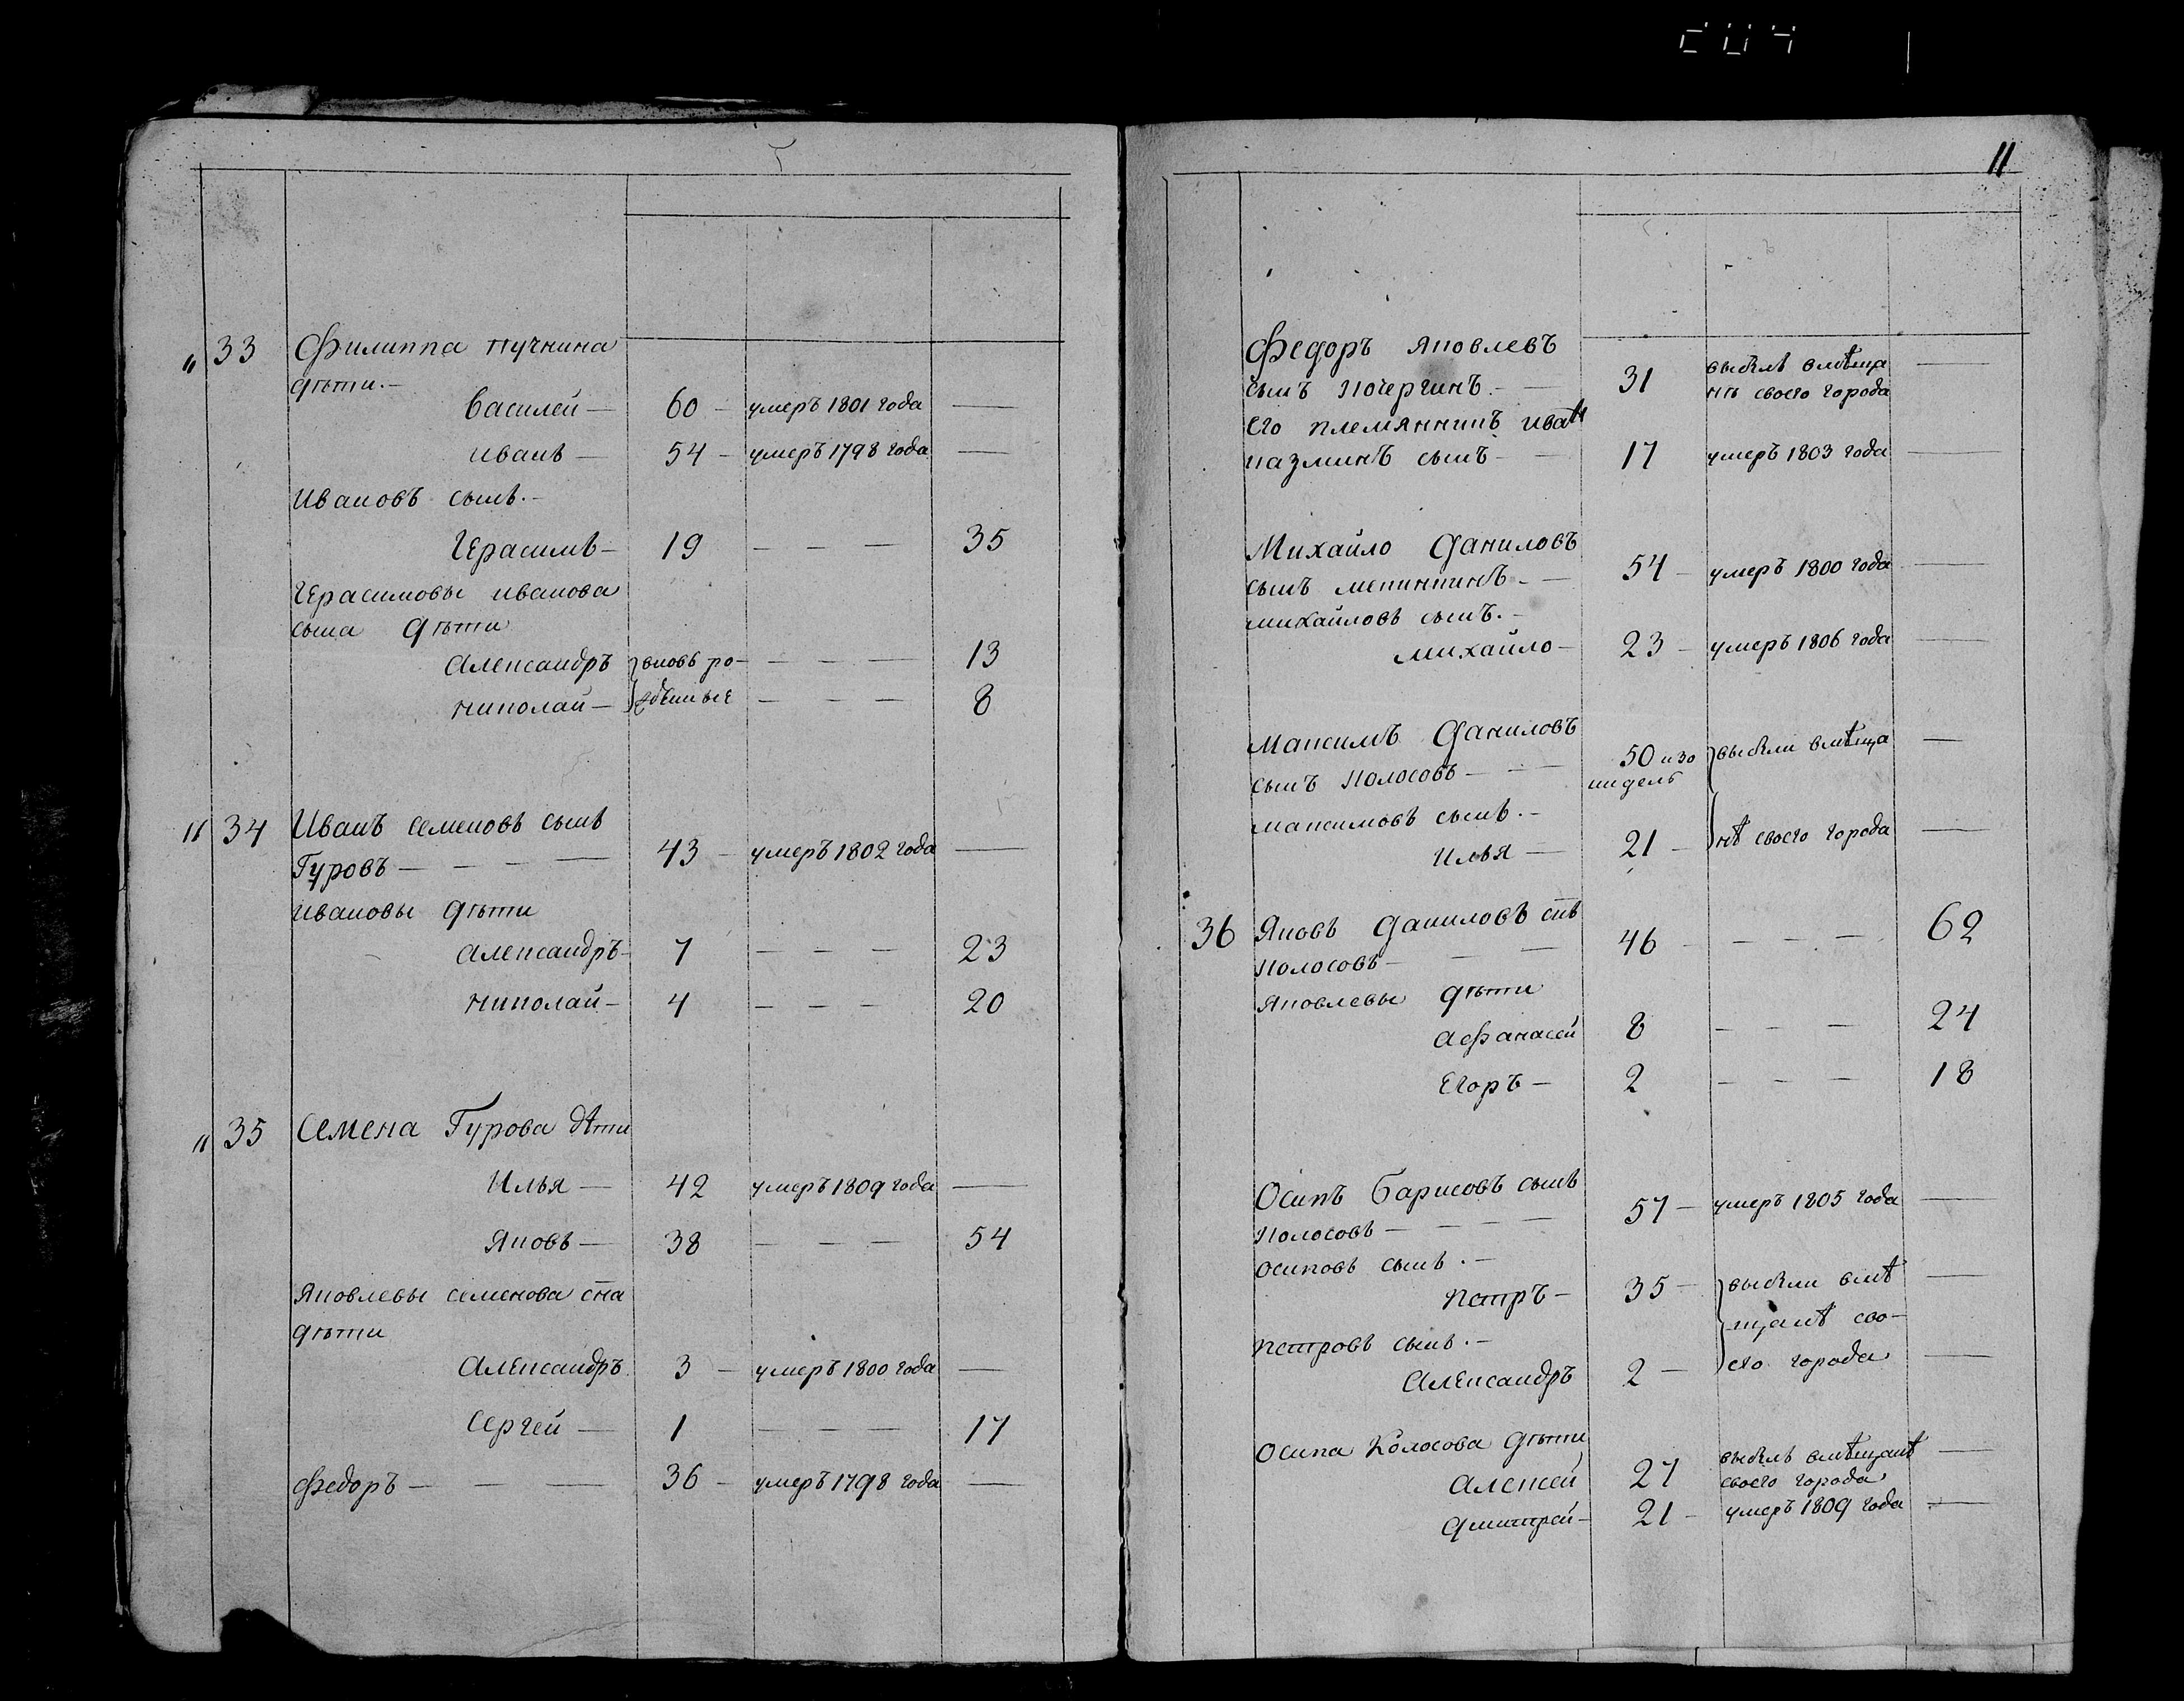 33 Филиппа Пучнина
дѣти.—
Василей — 60 — умеръ 1801 года —
Иванъ — 54 — умеръ 1798 года —
Ивановъ сынъ.—
Герасимъ — 19 — — — 35
Герасимовы Иванова
сына дѣти
Александръ вновь ро- — — — 13
Николай — жденные — — — 8
34 Иванъ Семеновъ сынъ
Гуровъ — — — — 43 — умеръ 1802 года —
Ивановы дѣти
Александръ — 7 — — — 23
Николай — 4 — — — 20
35 Семена Гурова дѣти
Илья — 42 умеръ 1809 года —
Яковъ — 38 — — — 54
Яковлевы Семенова сна
дѣти
Александръ 3 — умеръ 1800 года —
Сергей — 1 — — — 17
Федоръ — — — 36 — умеръ 1798 года —
11
Федоръ Яковлевъ
сынъ Кочергинъ.— — 31 выбылъ вмѣща —
нѣ своего города
Его племянникъ Иванъ
Казминъ сынъ — — 17 умеръ 1803 года —
Михайло Даниловъ
сынъ — 54 — умеръ 1800 года —
Михайловъ сынъ.—
Михайло — 23 — умеръ 1806 года —
Максимъ Даниловъ
сынъ Колосовъ — — — 50 изо выбыли вмѣща —
Максимовъ сынъ.—
Илья — 21 — нѣ своего города —
36 Яковъ Даниловъ снъ
Колосовъ — — — 46 — — — — 62
Яковлевы дѣти
Афанасей 8 — — — 24
Егоръ — 2 — — — 18
Осипъ Барисовъ сынъ
Колосовъ — — — — 57 — умеръ 1805 года —
Осиповъ сынъ.—
Петръ — 35 — выбыли вмѣ —
Петровъ сынъ.— щанѣ сво-
Александръ 2 — его города —
Осипа Колосова дѣти
Алексей 27 выбылъ вмѣщанѣ —
своего города
Дмитрей — 21 — умеръ 1809 года —